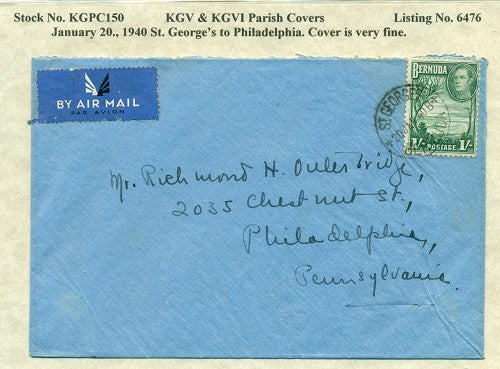 Stock No. KGPC150 KGV & KGVI Parish Covers Listing No. 6476
January 20., 1940 St. George's to Philadelphia. Cover is very fine.
BY AIR MAIL
PAR AVION
BERMUDA
1/- POSTAGE 1/-
ST GEORGES
Mr. Richmond H. Outerbridge,
2035 Chestnut St.,
Philadelphia,
Pennsylvania.